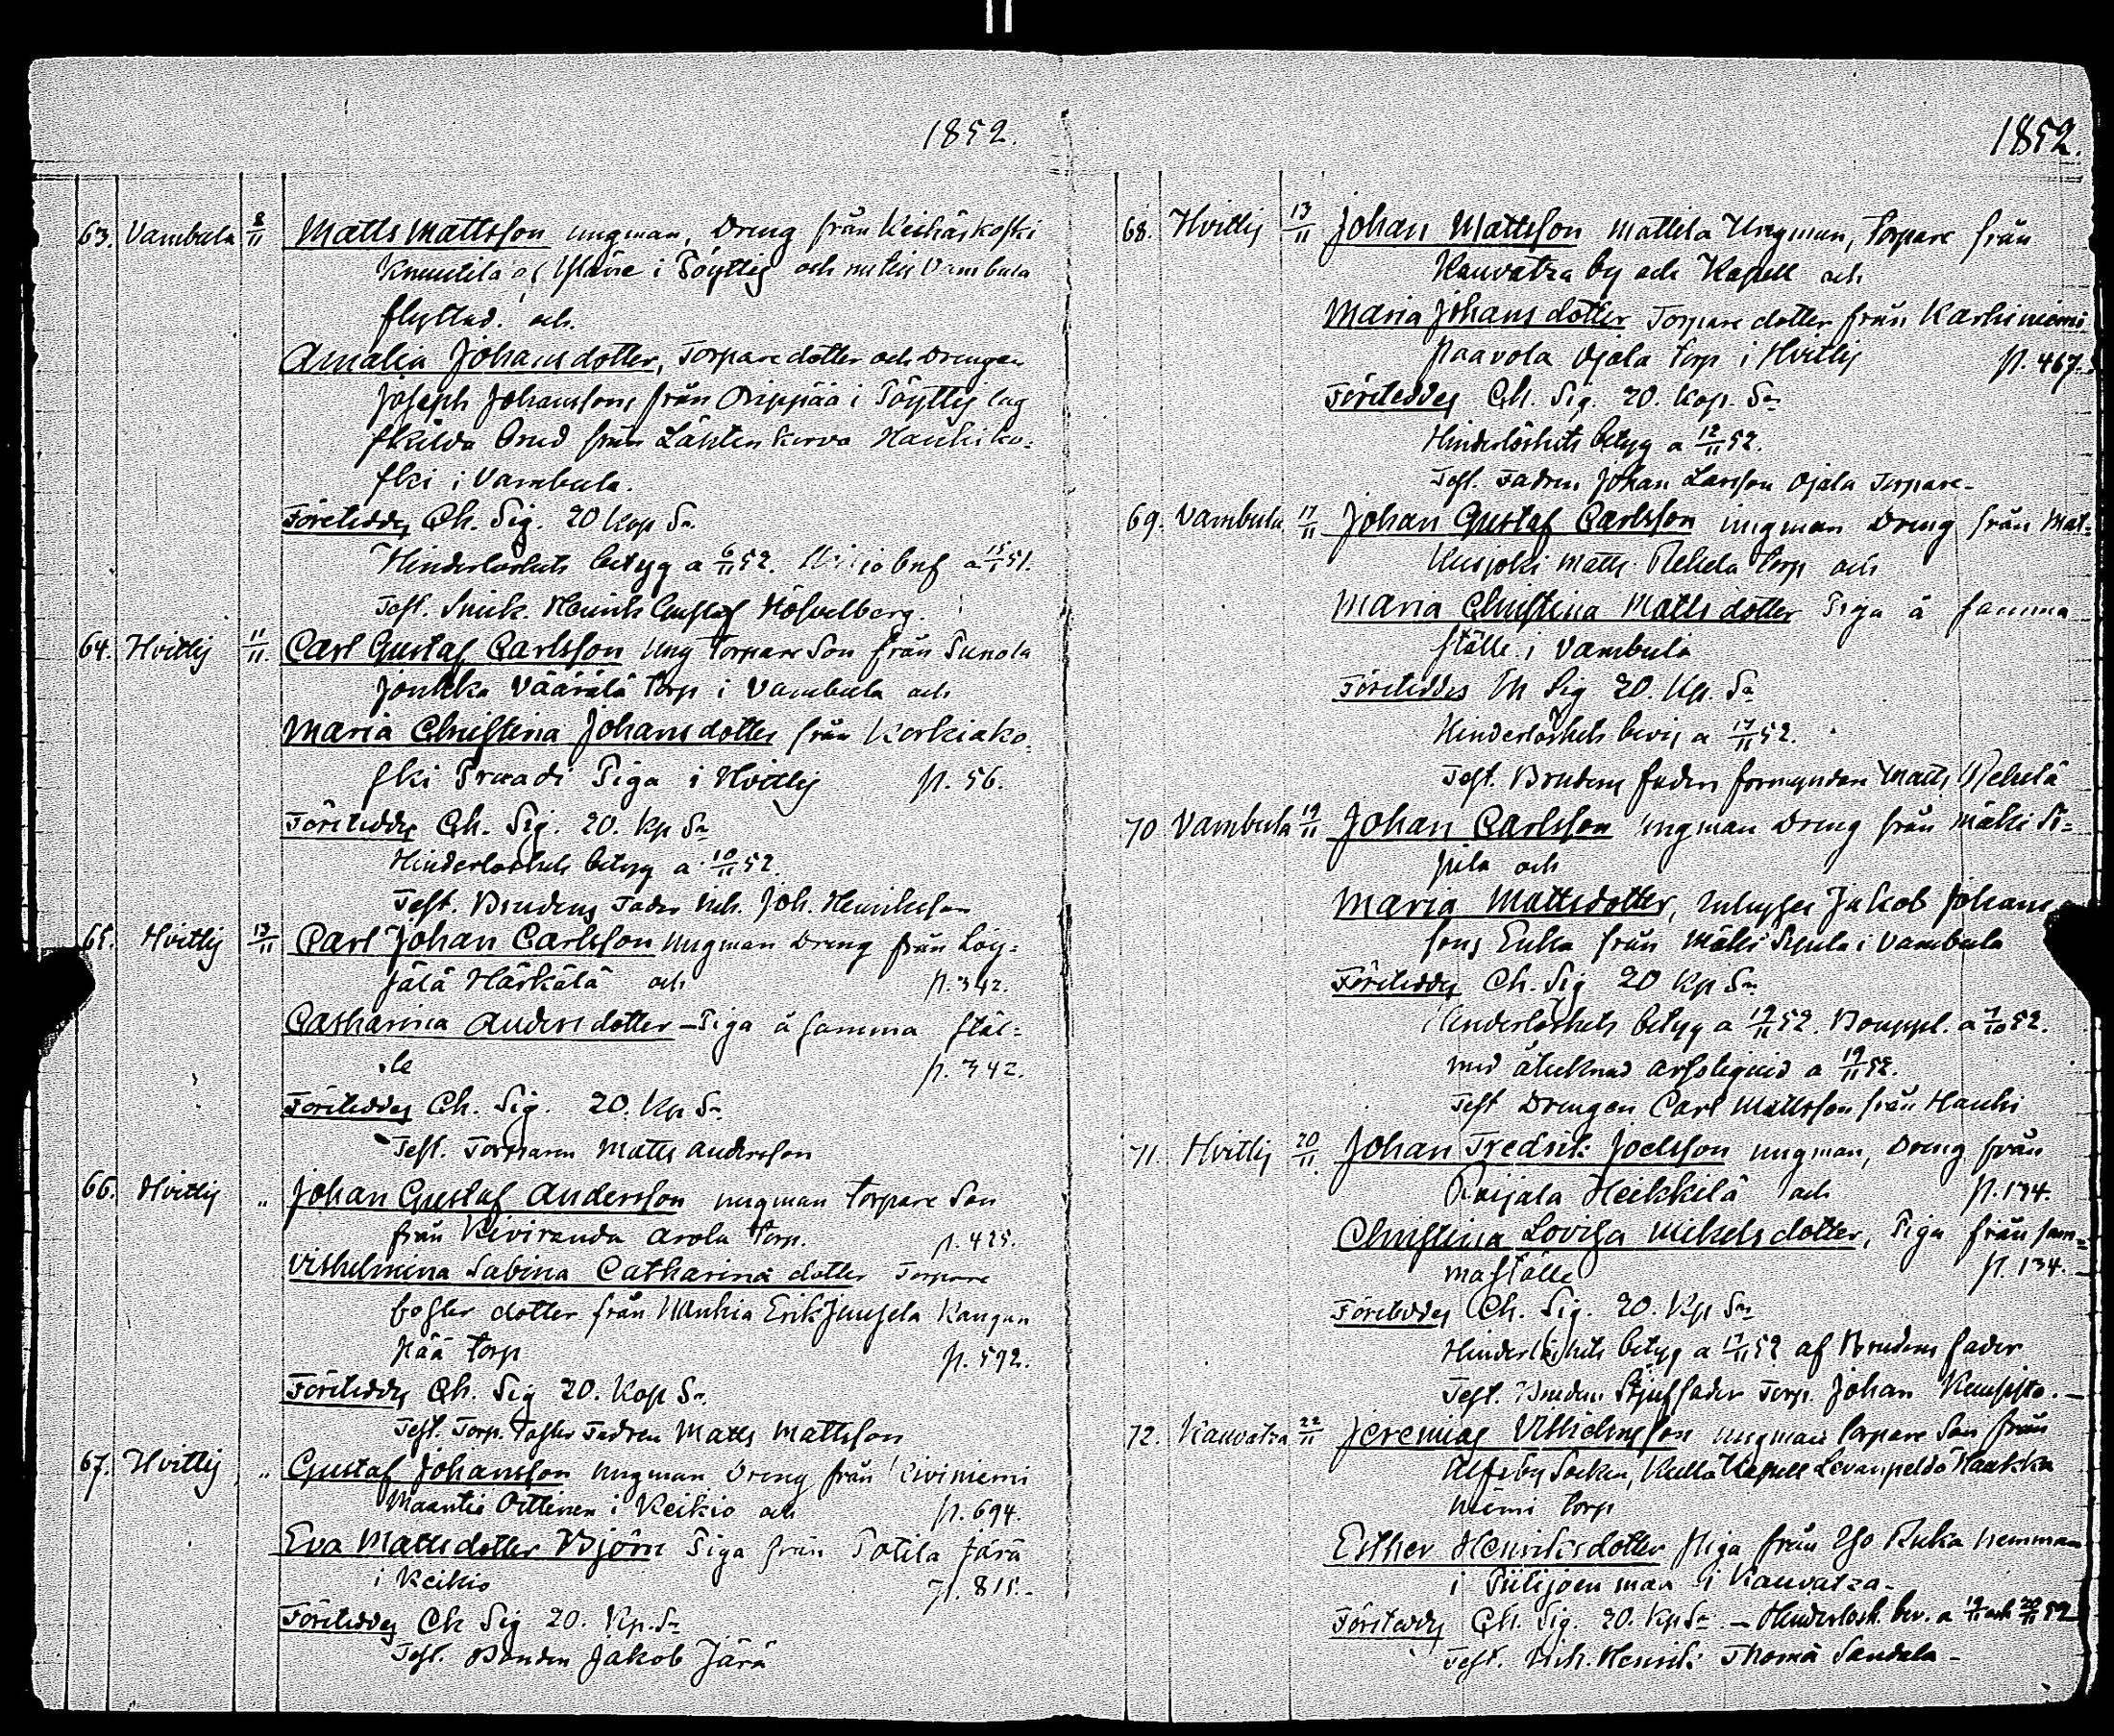 1852.
63. Vambula 8/11 Matts Mattsson ungman, Dreng från Keihäskoski
Knuutila af Yläne i Pöyttis och nu till Vambula
flyttad. och
Amalia Johansdotter, Torpare dotter och Drengen
Joseph Johanssons från Orippää i Pöyttis lag
skilda brud från Hauhiko-
ski i Vambula.
Företeddes Ch. Sig. 20 Kop Sr
Hinderlöshets betyg a 6/11 52. a 15/1 51.
Test. Snick. Henrik Gustaf
64. Hvittis 11/11. Carl Gustaf Carlsson ung Torpare Son från Sunola
Joukka Väärälä torp i Vambula och
Maria Christina Johansdotter från Korkiako-
ski Praadi Piga i Hvittis p. 56.
Företeddes Ch. Sig. 20. Kp Sr
Hinderlöshets betyg a 10/11 52.
Test. Brudens Fader Inh. Joh. Henriksson
65. Hvittis 13/11 Carl Johan Carlsson ungman Dreng från Loi-
jälä Härkälä och p. 342.
Catharina Andersdotter – Piga å samma stäl-
le p. 342.
Företeddes Ch. Sig. 20. Kp Sr
Test. Torparen Matts Andersson
66. Hvittis " Johan Gustaf Andersson ungman torpare Son
från Kiviranda Arola torp. p. 425.
Vilhelmina Sabina Catharina dotter Torpare
foster dotter från Mauhia Erik Junsela Kangan
pää torp p. 592.
Företeddes Ch. Sig 20. Kop Sr
Test. Torp. Foster Fadren Matts Mattsson
67. Hvittis " Gustaf Johansson ungman Dreng från Kiviniemi
Maantie Orttinen i Keikio och p. 694.
Eva Mattsdotter Björn Piga från Potila Järä
i Keikio p. 815.-
Företeddes Ch Sig 20. Kp. Sr
Test. Bonden Jakob Järä
1852.
68. Hvittis 13/11 Johan Mattsson Mattila Ungman, Torpare från
Kauvatza by och Kapell och
Maria Johansdotter Torpare dotter från Karhiniemi
Paavola Ojala torp i Hvittis p. 467.
Företeddes Ch. Sig. 20. Kop. Sr
Hinderlöshets betyg a 12/11 52.
Test. Fadren Johan Larsson Ojala Torpare-
69. Vambula 17/11 Johan Gustaf Carlsson ungman Dreng från Mat-
kusjoki Matts Rekela torp och
Maria Christina Mattsdotter Piga å samma
ställe i Vambula
Företeddes Ch Sig 20. Kp. Sr
Hinderlöshets bevis a 17/11 52.
Test. Brudens fader Matts Rekelä
70 Vambula 19/11 Johan Carlsson ungman Dreng från Mäki Si-
pila och
Maria Mattsdotter, Inhyses Jakob Johans
sons Enka från Mäki Sipila i Vambula
Företeddes Ch. Sig 20 Kp Sr
Hinderlöshets betyg a 19/11 52. Bouppt. a 7/10 52.
med a 19/11 52.
Test Drengen Carl Mattsson från Hauhi
71. Hvittis 20/11. Johan Fredrik Joelsson ungman, Dreng från
Raijala Heikkilä och p. 134.
Christina Lovisa Mikelsdotter, Piga från sam-
ma ställe p. 134.
Företeddes Ch. Sig. 20. Kp Sr
Hinderlöshets betyg a 17/11 52 af Brudens fader
Test. Brudens Stjuffader Torp. Johan
72. Kauvatza 22/11 Jeremias Vilhelmsson ungman torpare Son från
Ulfsby Socken, Kulla Kapell Levanpeldo Haukka
niemi torp
Esther Henriksdotter piga från Yso Ruka hemman
i Piilijoenmaa i Kauvatza-
Företeddes Ch. Sig. 20. Kp Sr – Hinderlösh. bev. a 19/11 och 20/11 52
Test. Inh. Henrik Thomä Sandala-